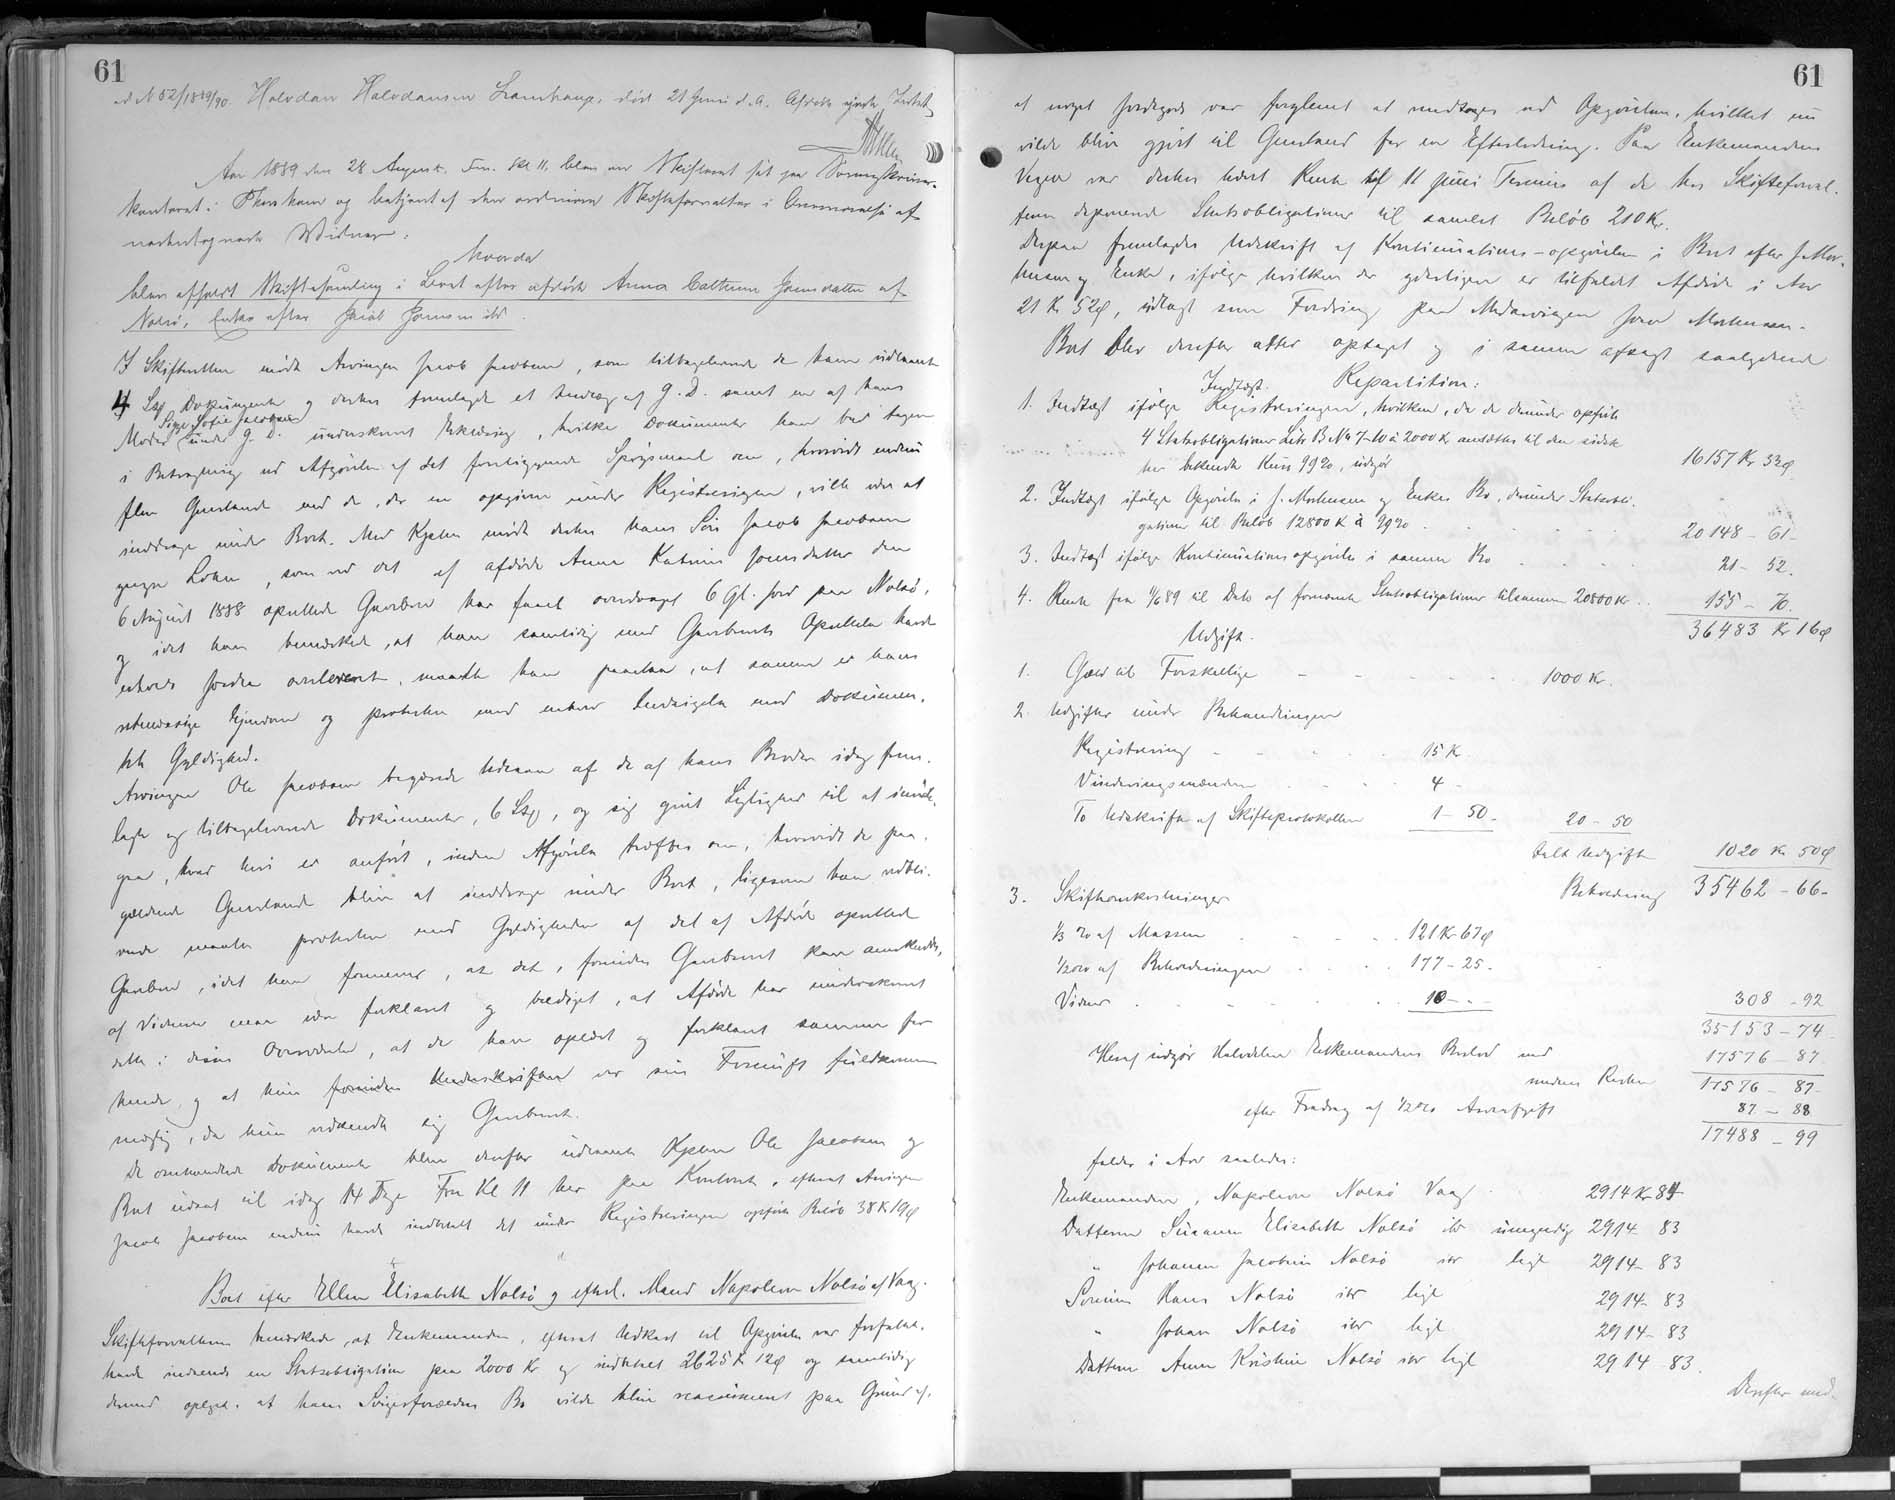 61
ad N 52/1889/90. Halvdan Halvdansen, død 21 Juni d. A.
Aar 1889 den 28 August. Fm. Kl 11, blev en Skifteret sat paa Sorenskriver-
kontoret i Thorshavn og betjent af den ordinære Skifteforvalter i Overværelse af
undertegnede Vidner.
hvorda
blev afholdt Skiftesamling i Boet efter afdøde Anna Cathrine Joensdatter af
Nolsø, Enke efter Jacob Joensen ibd.
I Skifteretten mødte Arvingen Jacob Jacobsen, som tilbageleverede de ham udlaante
4 Lsg Dokumenter og derhos fremlagde et Indlæg af g. D. samt en af hans
Moder Sofie Jacobsen under g. D. underskrevet Erklæring, hvilke Dokumenter han bad tagen
i Betragtning ved Afgjørelse af det foreliggende Spørgsmaal om, hvorvidt endnu
flere Gjenstande end de, der ere opgivne under Registreringen, ville være at
inddrage under Boet. Med Kjæren mødte derhos hans Søn Jacob Jacobsen
yngre Lohn, som ved det af afdøde Anna Katrine Joensdatter den
6 August 1888 oprettede Gavebrev har faaet overdraget 6 Gl. Jord paa Nolsø,
og idet han bemærkede, at han samtidig med Gavebrevets Oprettelse havde
erholdt Jorden overleveret, maatte han paastaa, at samme er hans
retmæssige Ejendom og protestere mod enhver Indsigelse mod Dokumen-
tets Gyldighed.
Arvingen Ole Jacobsen begjærede Udlaan af de af hans Broder idag frem-
lagte og tilbageleverede Dokumenter, 6 Lsg, og sig givet Lejlighed til at imøde-
gaa, hvad heri er anført, inden Afgjørelse træffes om, hvorvidt de paa-
gjældende Gjenstande bliver at inddrage under Boet, ligesom han vedbli-
vende maatte protestere mod Gyldigheden af det af Afdøde oprettede
Gavebrev, idet han formener, at det, forinden Gavebrevet kan anerkendes,
af Vidnerne maa være forklaret og beediget, at Afdøde har underskrevet
dette i deres Overværelse, at de have oplæst og forklaret samme for
hende, og at hun forinden Underskriften var sin Fornuft fuldkommen
mægtig, da hun vedkendte sig Gavebrevet.
De omhandlede Dokumenter bleve derefter udlaante Kjæren Ole Jacobsen og
Boet udsat til idag 14 Dage Fm Kl 11 her paa Kontoret, efterat Arvingen
Jacob Jacobsen endnu havde indbetalt det under Registreringen opførte Beløb 38 K 19 Ø
Boet efter Ellen Elisabeth Nolsø og efterl. Mand Napoleon Nolsø af Vaag.
Skifteforvalteren bemærkede, at Enkemanden, efterat Udkast til Opgjørelse var forfattet,
havde indsendt en Statsobligation paa 2000 Kr og indbetalt 2625 K 12 Ø og samtidig
dermed oplyst, at hans Svigerforældres Bo vilde blive reassumeret paa Grund af,
61
at noget Jordegods var forglemt at medtages ved Opgjørelsen, hvilket nu
vilde blive gjort til Gjenstand for en Efterlodning. Paa Enkemandens
Vegne var derhos hævet Rente til 11 Juni Termin af de hos Skifteforval-
teren deponerede Statsobligationer til samlet Beløb 210 Kr.
Derpaa fremlagdes Udskrift af Kontinuations-opgjørelsen i Boet efter J. Mor-
tensen og Enke, ifølge hvilken der yderligere er tilfaldet Afdøde i Arv
21 Kr 52 Ø, udlagt som Fordring paa Medarvingen Joen Mortensen.
Boet blev derefter atter optaget og i samme afsagt saalydende
Repartition:
Indtægt.
1. Indtægt ifølge Registreringen, hvilken, da de derunder opførte
4 Statsobligationer Litr B No 7-10 à 2000 K ansættes til den sidste
her bekendte Kurs 99 20, udgør 16157 Kr 33 Ø
2. Indtægt ifølge Opgjørelse i J. Mortensen og Enkes Bo, derunder Statsobli-
gationer til Beløb 12800 K à 99 20 20148 - 61 -
3. Indtægt ifølge Kontinuationsopgjørelse i samme Bo 21 - 52.
4. Rente fra 11/6 89 til Dato af fornævnte Statsobligationer tilsammen 20800 Kr 155 - 70.
36483 Kr 16 Ø
Udgift.
1. Gæld til Forskellige 1000 Kr.
2. Udgifter under Behandlingen
Registrering 15 K
Vurderingsmændene 4 -
To Udskrifter af Skifteprotokollen 1 - 50 - 20 - 50
Ialt Udgifter 1020 Kr 50 Ø
Beholdning 35462 - 66 -
3. Skifteomkostninger
1/3 % af Massen 121 K 67 Ø
1/2 % af Beholdningen 177 - 25 -
Vidner 10 - " - 308 - 92
35153 - 74
Heraf udgør Halvdelen Enkemandens Boslod med 17576 - 87
medens Resten 17576 - 87 -
efter Fradrag af 1/2 % Arveafgift 87 - 88
17488 - 99
falder i Arv saaledes:
Enkemanden, Napoleon Nolsø Vaag 2914 K 84
Datteren Susanne Elisabeth Nolsø ibd umyndig 2914 - 83
" Johanne Jacobine Nolsø ibd lige 2914 - 83
Sønnen Hans Nolsø ibd lige 2914 - 83
" Johan Nolsø ibd lige 2914 - 83
Datteren Anne Kristine Nolsø ibd lige 2914 - 83.
Derefter ud-